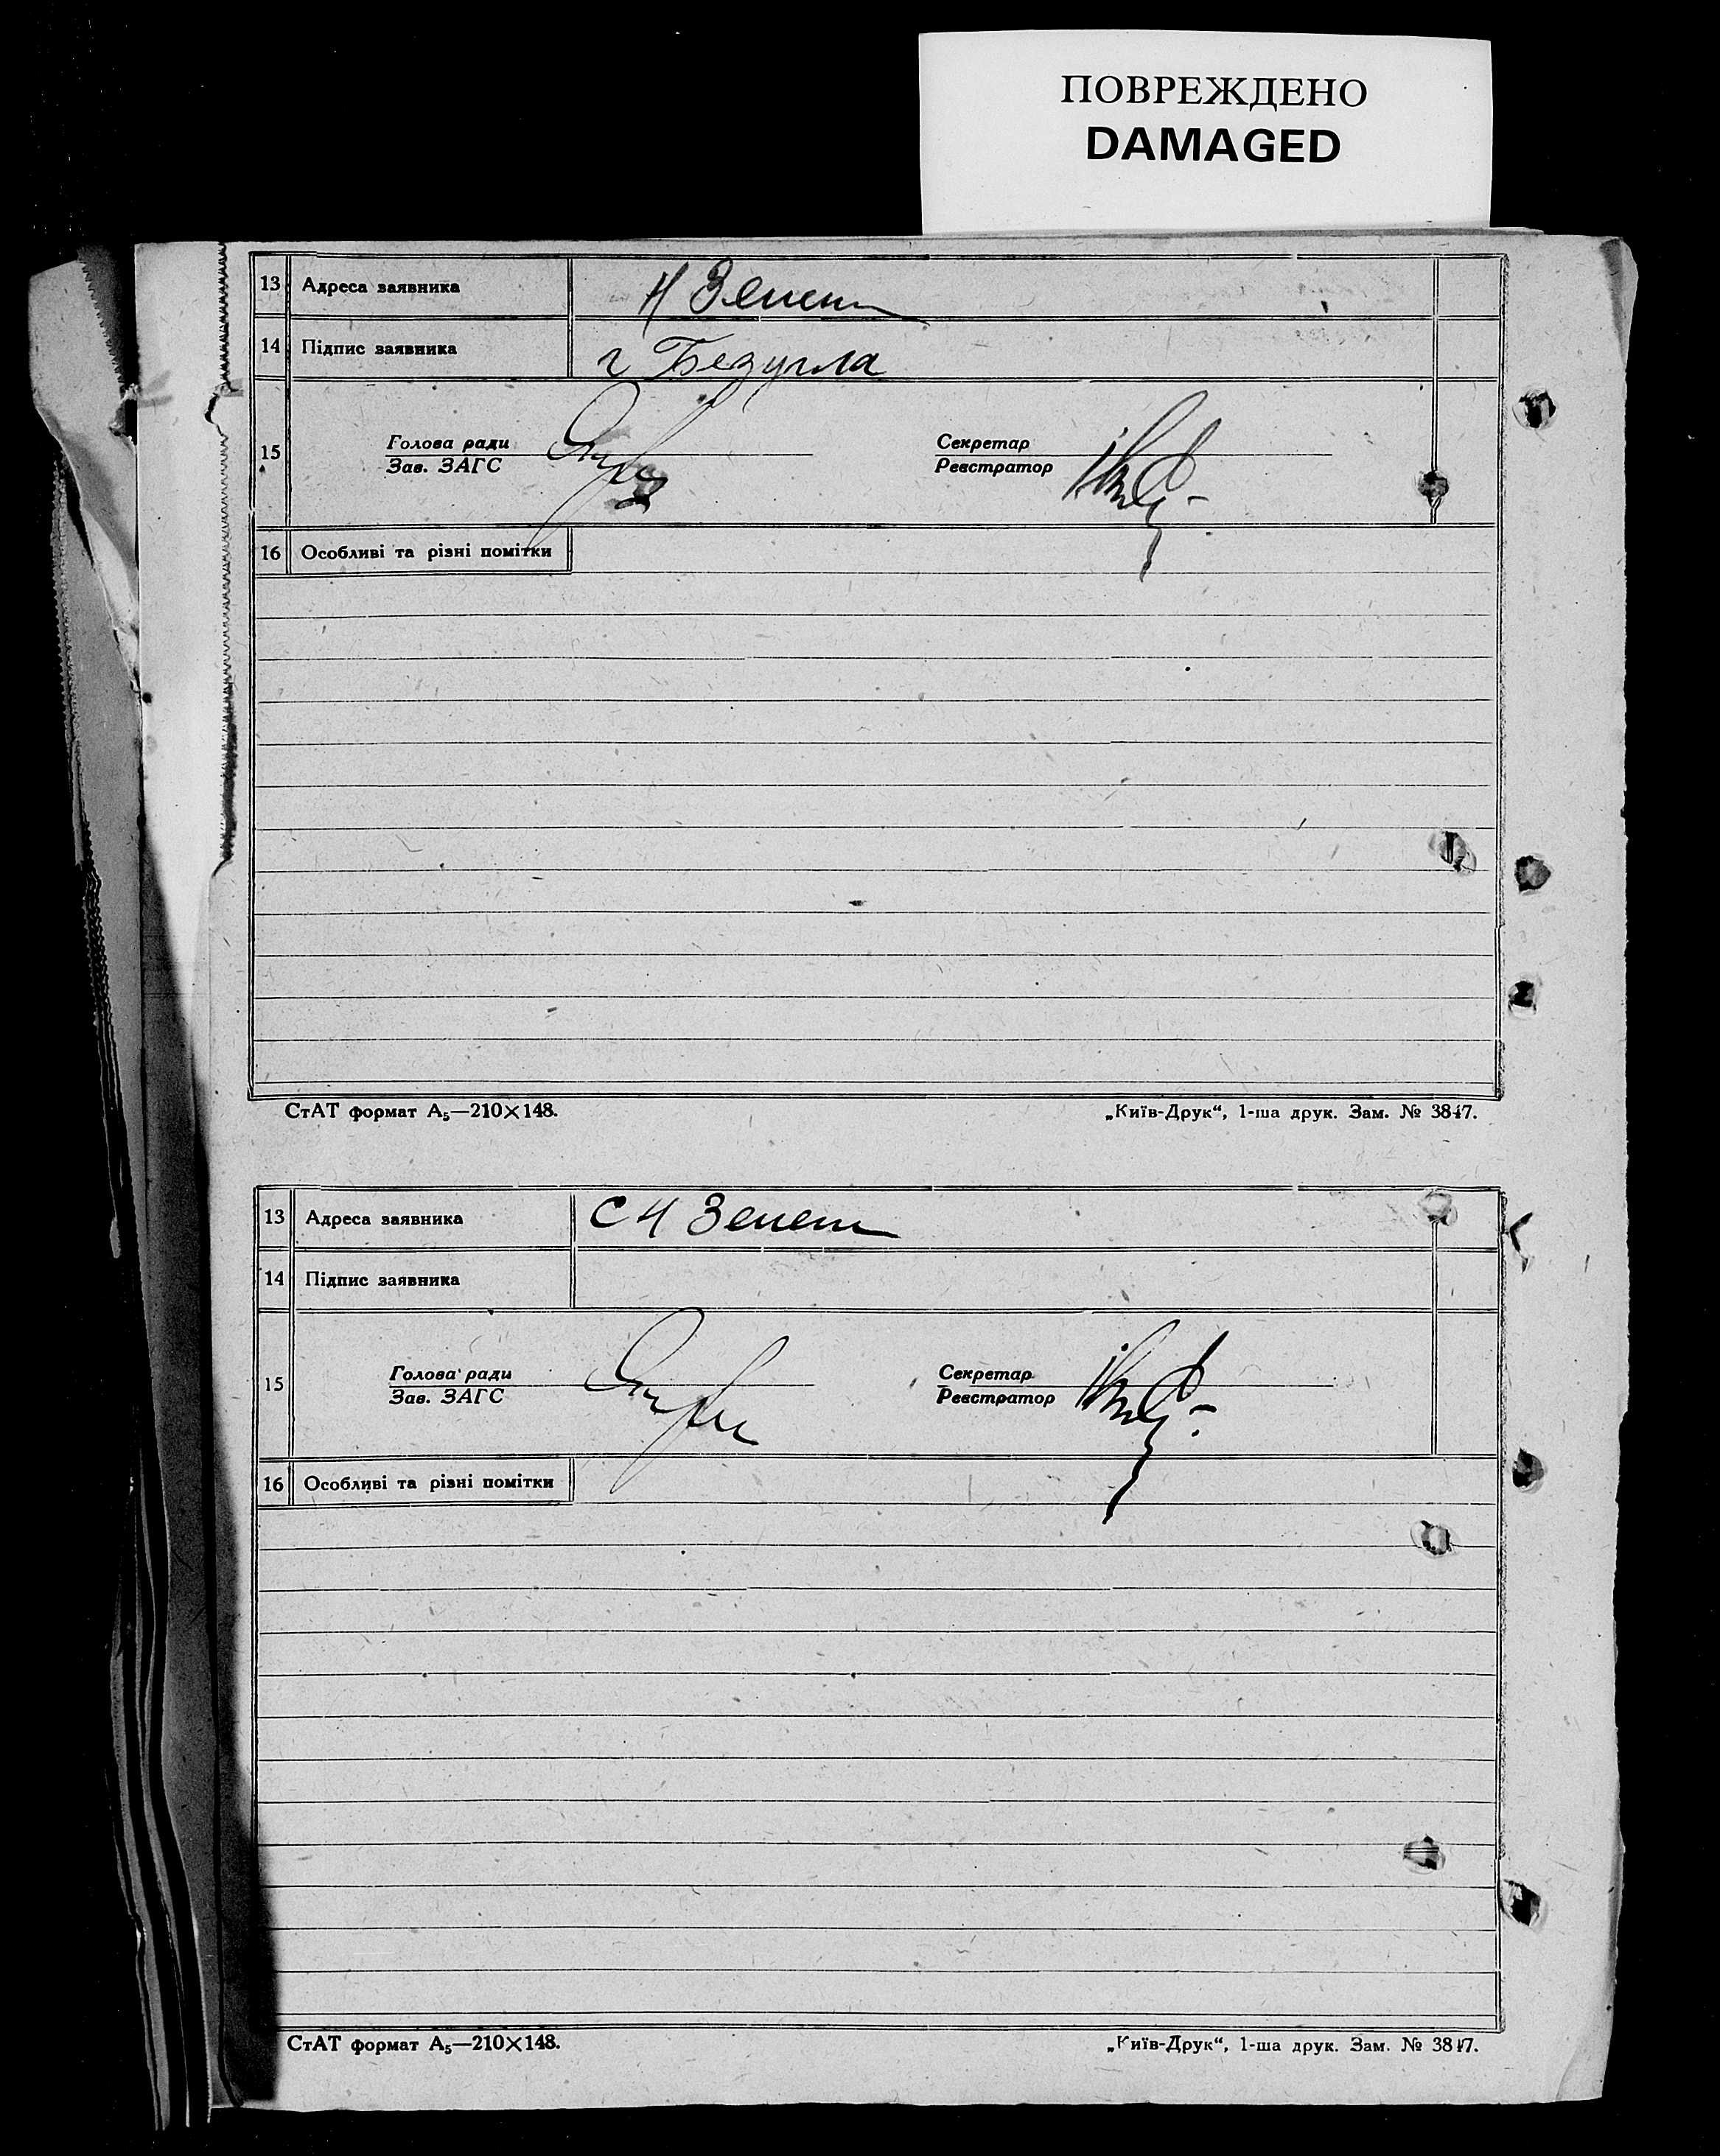 ПОВРЕЖДЕНО
DAMAGED
13 Адреса заявника
14 Підпис заявника г Безугла
15 Голова ради Секретар
Зав. ЗАГС Реєстратор
16 Особливі та різні помітки
СтАТ формат А₅—210×148. „Київ-Друк“, 1-ша друк. Зам. № 3847.
13 Адреса заявника
14 Підпис заявника
15 Голова ради Секретар
Зав. ЗАГС Реєстратор
16 Особливі та різні помітки
СтАТ формат А₅—210×148. „Київ-Друк“, 1-ша друк. Зам. № 3847.